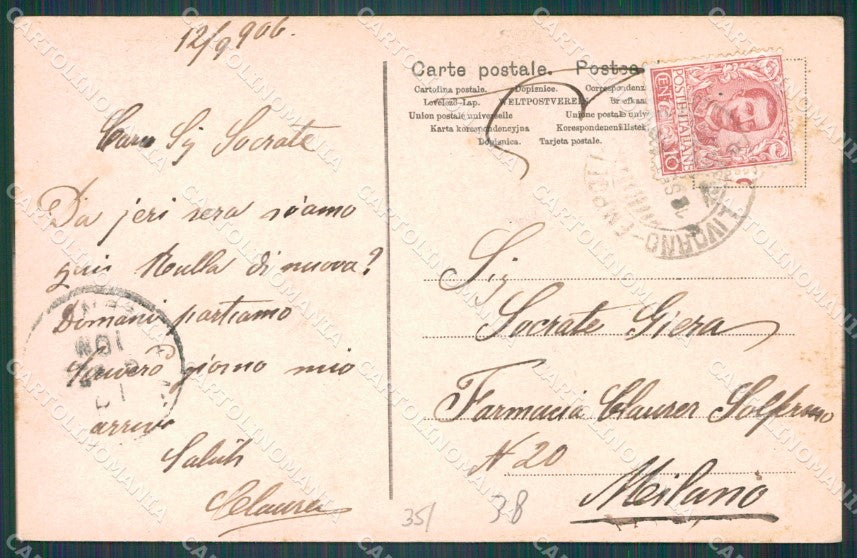 12/9 906.
Caro Sig Socrate
Da jeri sera siamo
qui Nulla di nuovo?
Domani partiamo
scriverò giorno mio
arrivo
Saluti
Clauser
Carte postale. Postca
Cartolina postale. Dopisnice. Correspondenz
Levelező-Lap. WELTPOSTVEREIN Briefkaa
Union postale universelle Unione postale univ
Karta korespondencyjna Korespondenční lístek
Dopisnica. Tarjeta postale.
POSTE ITALIANE
CENT. 10
LIVORNO-EMPOLI
Sig
Socrate Giera
Farmacia Clauser Solferino
N 20
Milano
351 38
CARTOLINOMANIA